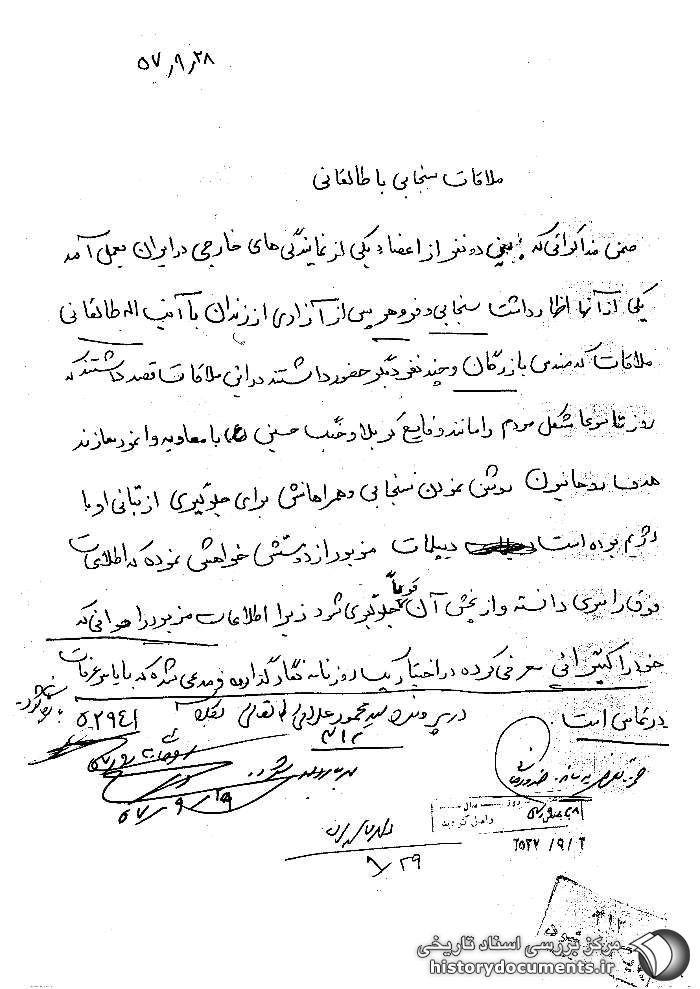 ۵۷٫۹٫۲۸
ملاقات سنجابی با طالقانی
ضمن مذاکراتی که بین دو نفر از اعضاء یکی از نمایندگی های خارجی در ایران بعمل آمد
یکی از آنها اظهار داشت سنجابی و فروهر پس از آزادی از زندان با آیت اله طالقانی
ملاقات که مهندس بازرگان و چند نفر دیگر حضور داشتند در این ملاقات قصد داشتند که
روز تاسوعا مشکل مردم را مانند وقایع کربلا و جنگ حسین (ع) با معاویه وانمود سازند
هدف روحانیون روشن نمودن سنجابی و همراهانش برای جلوگیری از تبانی او با
رژیم بوده است دیپلمات مزبور از دوستش خواهش نموده که اطلاعات
فوق را سری دانسته و از پخش آن قویاً جلوگیری شود زیرا اطلاعات مزبور را جوانی که
خود را کیترائی معرفی کرده در اختیار یک روزنامه نگار گذارده و مدعی شده که با یاسر عرفات
در تماس است
در پرونده سید محمود علائی طالقانی
۵۲۹۴۱
۳۱۲
۵۷٫۹٫۲۹
۲۵۳۷/۹/۲
۹/۲۹
۳۱۲
مرکز بررسی اسناد تاریخی
historydocuments.ir